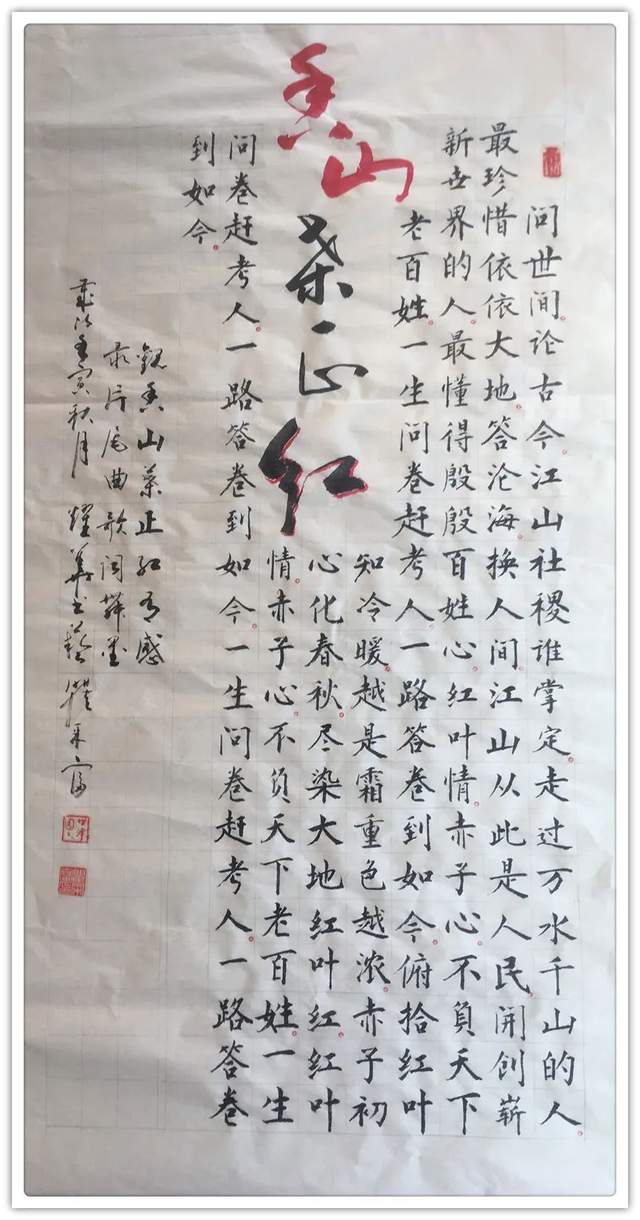 香山
葉正红
问世间。论古今。江山社稷谁掌定。走过万水千山的人。
最珍惜依依大地。答沧海。换人间。江山从此是人民。開创崭
新世界的人。最懂得殷殷百姓心。红叶情。赤子心。不負天下
老百姓。一生问卷赶考人。一路答卷到如今。俯拾红叶
知冷暖。越是霜重色越浓。赤子初
心化春秋。尽染大地红叶红。红叶
情。赤子心。不负天下老百姓。一生
问卷赶考人。一路答卷到如今。一生问卷赶考人。一路答卷
到如今。
觀香山葉正红有感
录片尾曲歌词
歲次壬寅秋月 耀華书藝